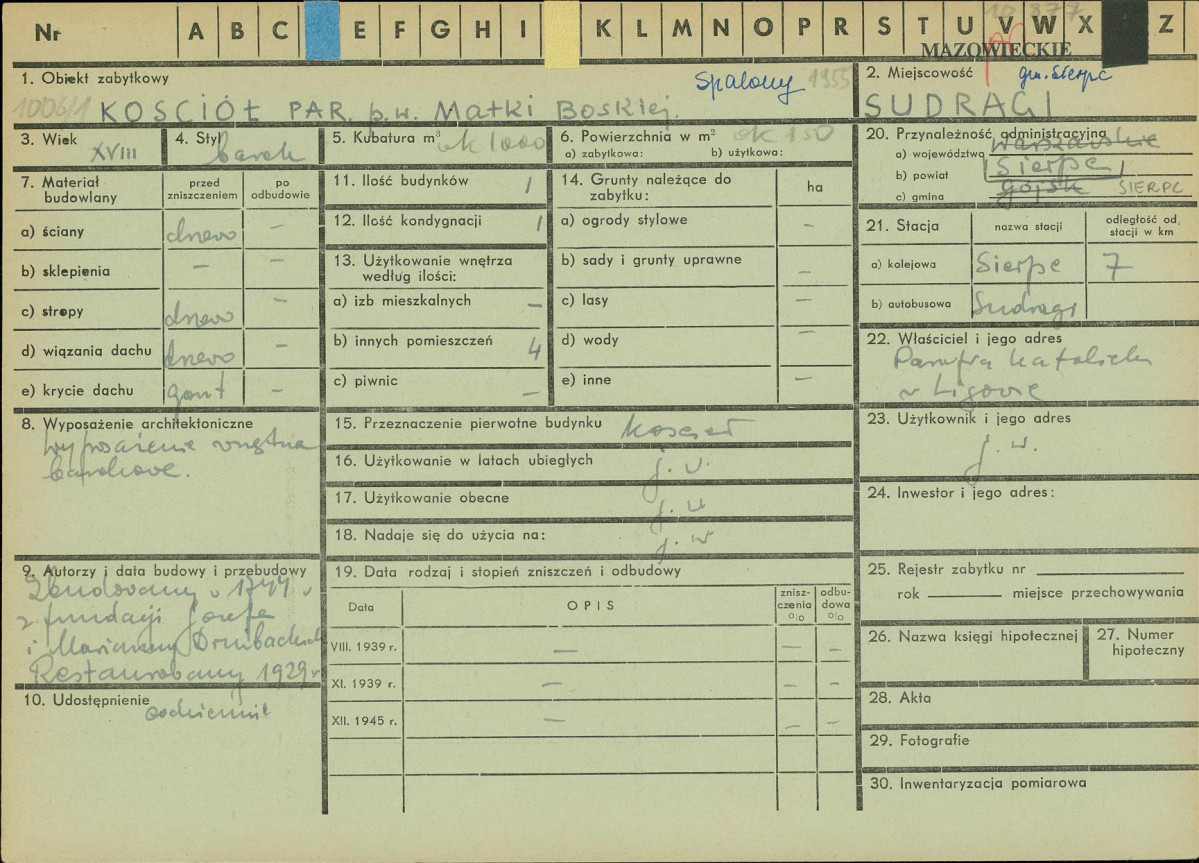 Nr A B C E F G H I K L M N O P R S T U V W X Z
10877
MAZOWIECKIE
1. Obiekt zabytkowy
Spalony 1955
10061/1 KOSCIÓŁ PAR. p.w. Matki Boskiej.
2. Miejscowość gm. Sierpc
SUDRAGI
3. Wiek XVIII
4. Styl barok
5. Kubatura m³ ok 1000
6. Powierzchnia w m² ok 150
a) zabytkowa: b) użytkowa:
7. Materiał budowlany
przed zniszczeniem
po odbudowie
a) ściany drewo –
b) sklepienia – –
c) stropy drewo –
d) wiązania dachu drewo –
e) krycie dachu gont –
8. Wyposażenie architektoniczne
Wyposażenie wnętrza
barokowe.
9. Autorzy i data budowy i przebudowy
Zbudowany w 1744 r
z fundacji Józefa
i Marianny
Restaurowany 1929 r
10. Udostępnienie
codziennie
11. Ilość budynków 1
12. Ilość kondygnacji 1
13. Użytkowanie wnętrza
według ilości:
a) izb mieszkalnych –
b) innych pomieszczeń 4
c) piwnic –
14. Grunty należące do
zabytku:
ha
a) ogrody stylowe –
b) sady i grunty uprawne –
c) lasy –
d) wody –
e) inne –
15. Przeznaczenie pierwotne budynku kościół
16. Użytkowanie w latach ubiegłych j. w.
17. Użytkowanie obecne j. w
18. Nadaje się do użycia na: j. w
19. Data rodzaj i stopień zniszczeń i odbudowy
Data OPIS znisz-czenia o|o odbu-dowa o|o
VIII. 1939 r. – – –
XI. 1939 r. – – –
XII. 1945 r. – – –
20. Przynależność administracyjna
a) województwo warszawskie
b) powiat Sierpc
c) gmina gójsk SIERPC
21. Stacja
nazwa stacji
odległość od stacji w km
a) kolejowa Sierpc 7
b) autobusowa Sudragi
22. Właściciel i jego adres
Parafia katolicka
w Ligowie
23. Użytkownik i jego adres
j. w.
24. Inwestor i jego adres:
25. Rejestr zabytku nr
rok miejsce przechowywania
26. Nazwa księgi hipotecznej
27. Numer hipoteczny
28. Akta
29. Fotografie
30. Inwentaryzacja pomiarowa